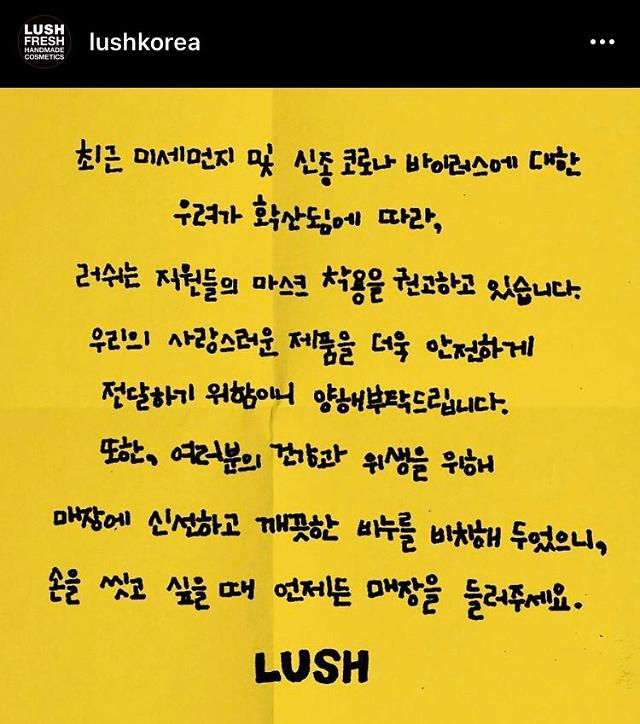 LUSH
FRESH
HANDMADE
COSMETICS
lushkorea
최근 미세먼지 및 신종 코로나 바이러스에 대한
우려가 확산됨에 따라,
러쉬는 직원들의 마스크 착용을 권고하고 있습니다.
우리의 사랑스러운 제품을 더욱 안전하게
전달하기 위함이니 양해부탁드립니다.
또한, 여러분의 건강과 위생을 위해
매장에 신선하고 깨끗한 비누를 비치해 두었으니,
손을 씻고 싶을 때 언제든 매장을 들러주세요.
LUSH